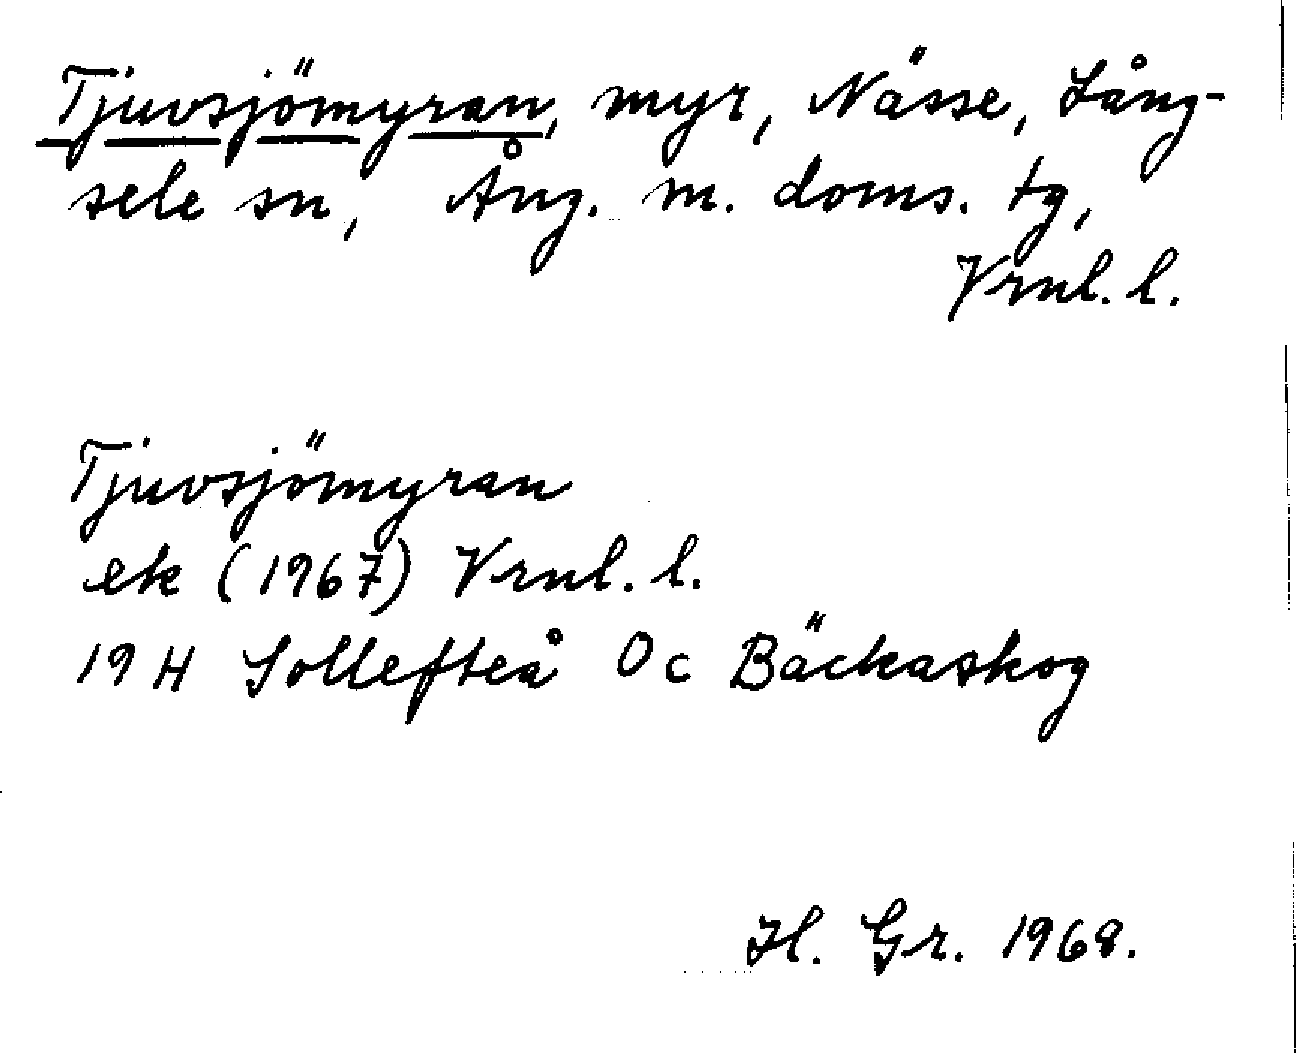 Tjuvsjömyran, myr, Nässe, Lång-
sele sn, Ång. m. doms. tg,
Vrnl. l.
Tjuvsjömyran
ek (1967) Vrnl. l.
19 H Sollefteå 0c Bäckaskog
H. Gr. 1968.